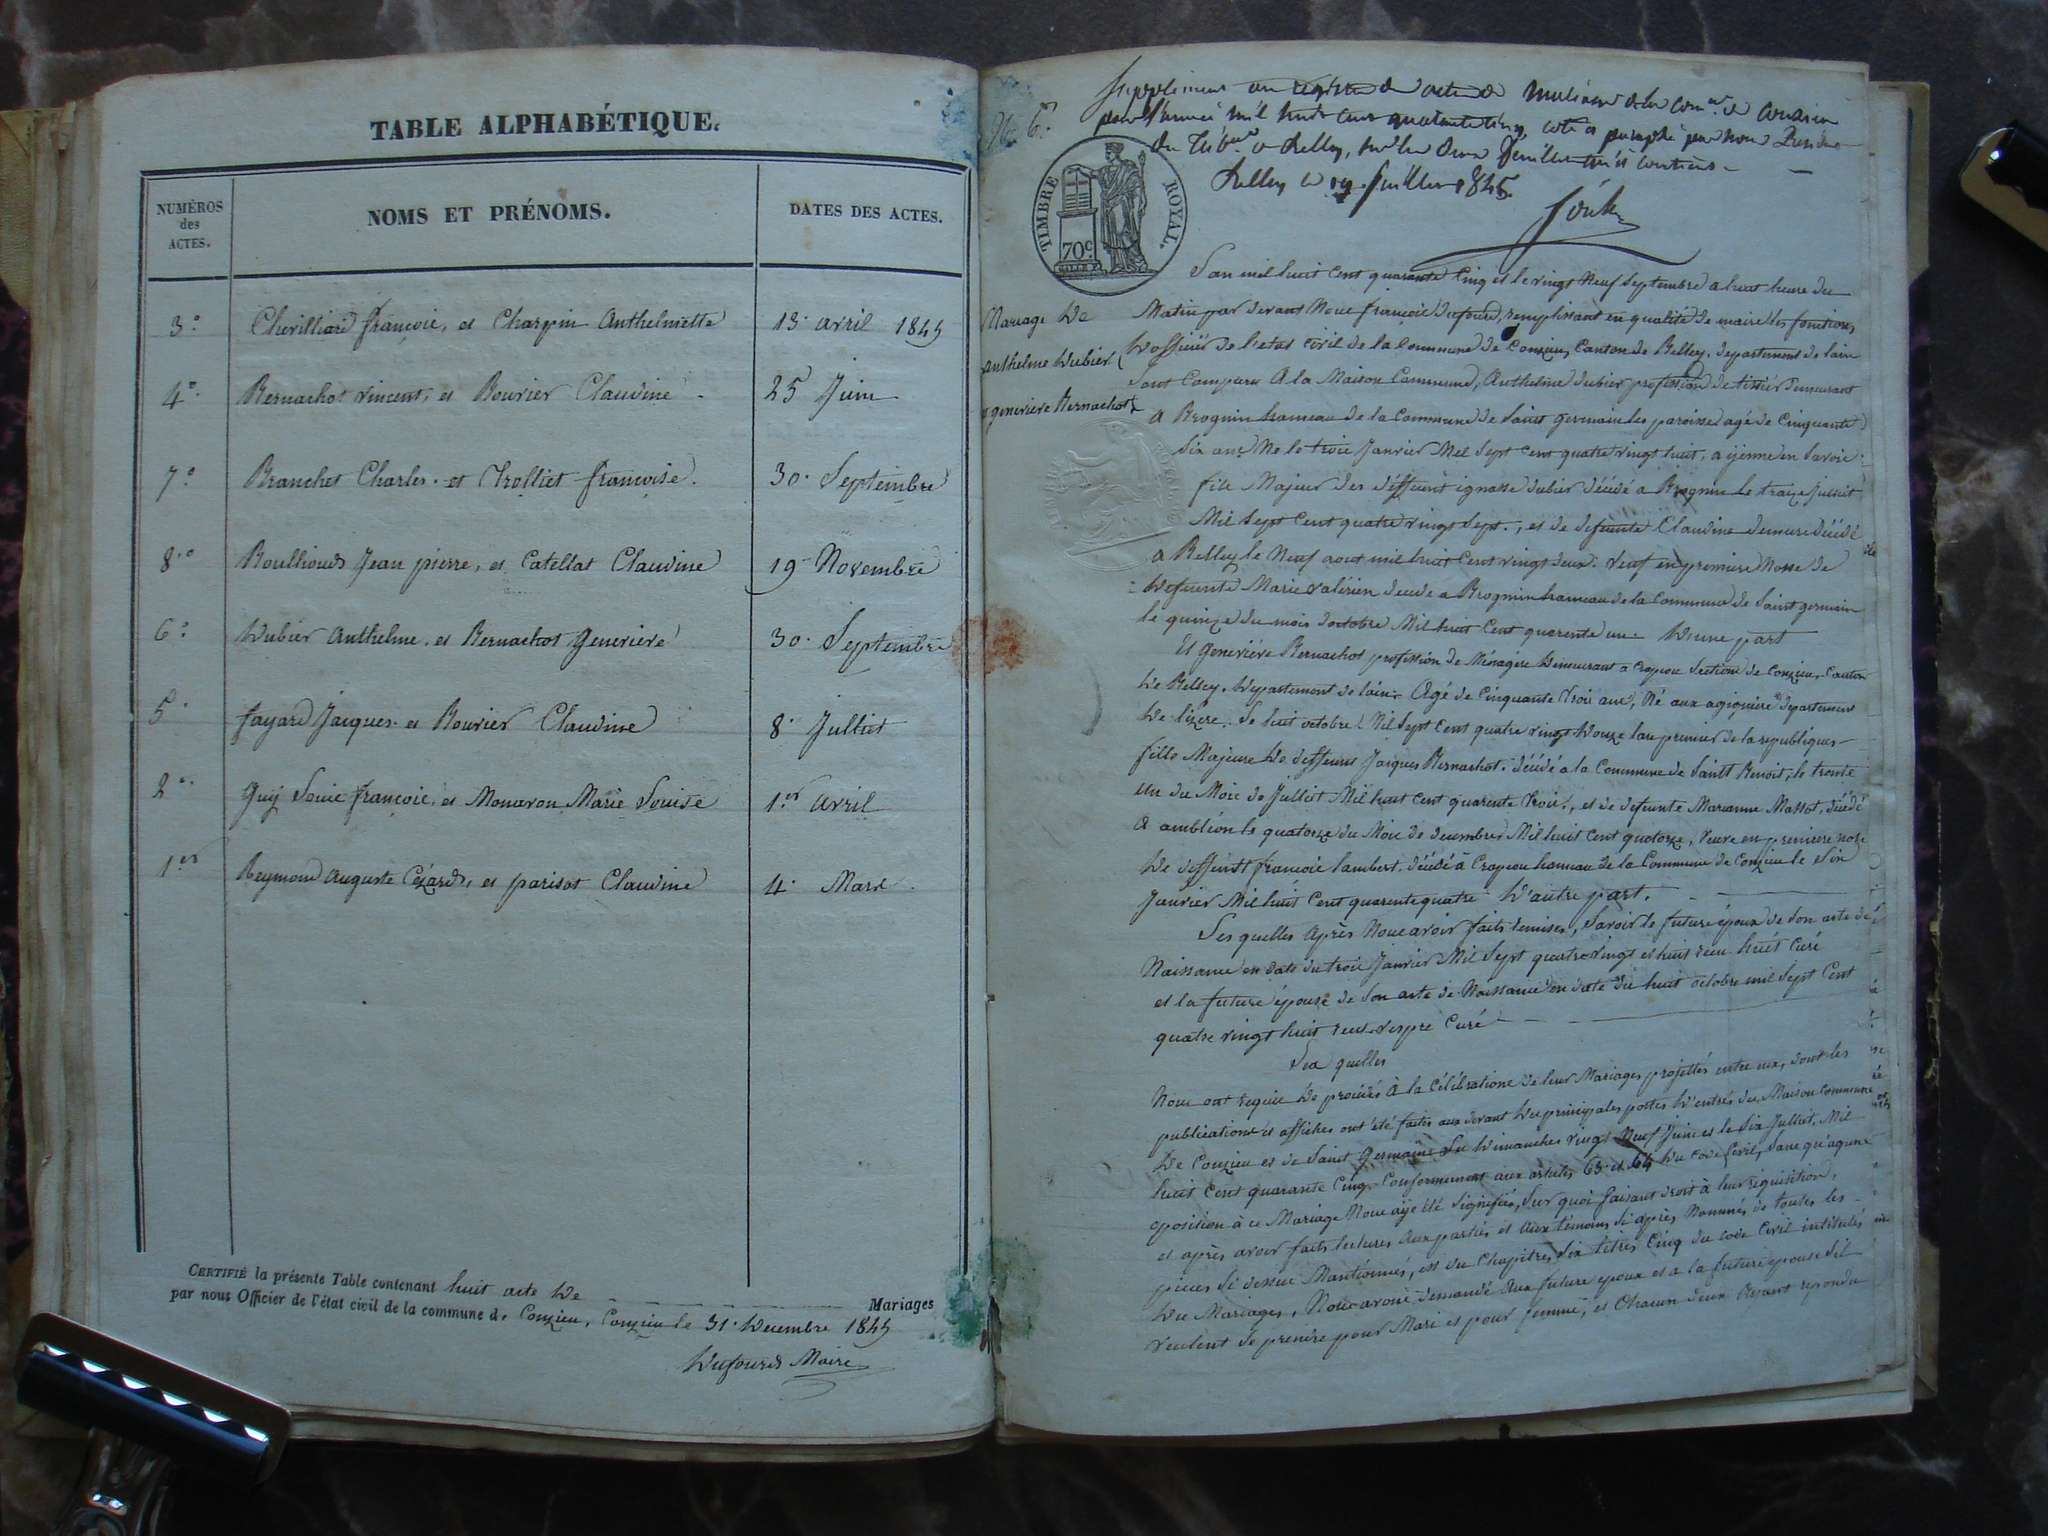 TABLE ALPHABÉTIQUE.
NUMÉROS
des
ACTES.
NOMS ET PRÉNOMS.
DATES DES ACTES.
3.° Chevilliard françois, et Charpin Anthelmette 13. avril 1845
4.° Bernachot vincent, et Bouvier Claudine 25 Juin
7.° Branchet Charles. et Trolliet françoise. 30. Septembre
8.° Boullioud Jean pierre, et Catellat Claudine 19 Novembre
6.° Dubier Anthelme. et Bernachot genevieve 30. Septembre
5. fayard Jacques. et Bouvier Claudine 8. Julliet
2. Guy Louis françois, et Monavon Marie Louise 1.er avril
1.er Reymond Auguste Cézard, et parisot Claudine 4. Mars
CERTIFIÉ la présente Table contenant huit acte de Mariages
par nous Officier de l'état civil de la commune de Conzieu, Conzieu le 31. Decembre 1845
Dufourd Maire
N.° 6.
Supplement au registre de actes de mariage de la com.ne de Conzieu
pour l'année mil huit cent quarante cinq, coté et paraphé par nous Président
du trib.al de Belley, sur les deux feuilles qu'il contient
Belley le 19 Juillet 1845
TIMBRE ROYAL.
70c
Mariage De
Anthelme Dubier
et genevieve Bernachot
L'an mil huit cent quarante Cinq et le vingt Neuf Septembre a huit heure du
Matin par devant Nous françois Dufourd, remplissant en qualité de maire les fonctions
D'officier de l'etat civil de la Commune de Conzieu, Canton de Belley, departement de lain
Sont Comparu A la Maison Commune, Anthelme dubier profession de tissier Demeurant
A Brognin hameau de la Commune de Saint germain les paroisse agé de Cinquante
Six ans Né le trois Janvier Mil Sept cent quatre vingt huit, a yenne en Savoie
fils Majeur des deffunt ignasse dubier décédé a Brognin le traize Julliet
Mil Sept Cent quatre vingt Sept., et de defunte Claudine demure décédé
A Belley le Neuf aout mil huit Cent vingt deux. veuf en premiere Nosse de
Defunte Marie valérien decede a Brognin hameau de la Commune de Saint germain
le quinze du mois doctobre Mil huit Cent quarente un. D'une part
Et Geneviève Bernachot profession de Ménagère Demeurant a Crapeou Section de Conzieu, Canton
De Belley. Departement de lain. Agé de Cinquante Trois ans, Né aux agniere departement
De lizere. Le huit octobre Mil Sept Cent quatre vingt Douze lan premier de la republique
fille Majeure De deffunt Jacques Bernachot. décédé a la Commune de Saint Benoit, le trente
un du Mois de Julliet Mil huit Cent quarente trois, et de defunte Marianne Massot, décédé
A amblion le quatorze du Mois de decembre Mil huit cent quatorze, veuve en premiere nosse
De deffunt françois lambert. décédé à Crapeou hameau de la Commune de Conzieu le Six
Janvier Mil huit Cent quarente quatre D'autre part.
Les quelles Après Nous avoir faits remises, Savoir le future époux de Son acte de
Naissance en date du trois Janvier Mil Sept quatre vingt et huit reçu huét Curé
et la future épouse de Son acte de Naissance en date du huit octobre mil Sept Cent
quatre vingt huit reçu vespre Curé
Les quelles
Nous ont requis De procédés A la Célébratione de leur Mariages projettés entre eux, dont les
publications et affiches ont été faites aux devant Des principales portes D'entrés des Maison Commune
De Conzieu et de Saint germain Les Dimanches vingt Neuf Juin et le Six Julliet. Mil
huit Cent quarante Cinq. Conformement aux articles 63 et 64 du Code Civil, Sans qu'aqune
oposition à ce Mariage Nous aÿe été Signifiés, Sur quoi faisant droit à leur réquisition,
et après avoir faits lectures Aux parties et Aux témoins Si après Nommés de toutes les
pieces Si dessus Mantionnés, et du Chapitres Six titres Cinq du code Civil intitulés
Des Mariages, Nous avons demandé Aux future epoux et a la future épouse S'il
veulent Se prenire pour Mari et pour femme, et Chacun deux Ayant répondu